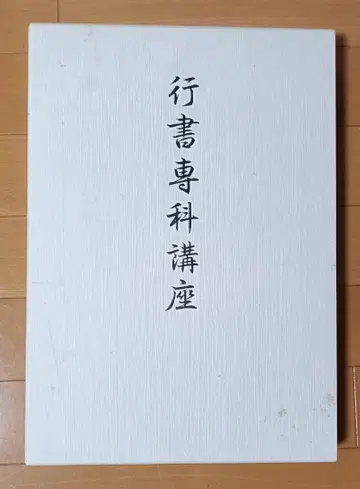 行書専科講座